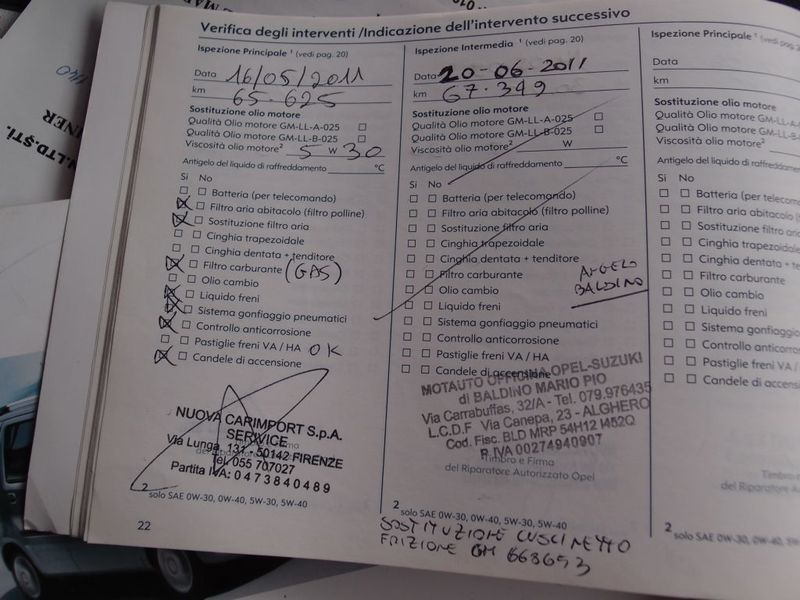 Verifica degli interventi /Indicazione dell'intervento successivo
Ispezione Principale ¹ (vedi pag. 20)
Data 16/05/2011
km 65.625
Sostituzione olio motore
Qualità Olio motore GM-LL-A-025
Qualità Olio motore GM-LL-B-025
Viscosità olio motore² 5 W 30
Antigelo del liquido di raffreddamento °C
Si No
Batteria (per telecomando)
Filtro aria abitacolo (filtro polline)
Sostituzione filtro aria
Cinghia trapezoidale
Cinghia dentata + tenditore
Filtro carburante (GAS)
Olio cambio
Liquido freni
Sistema gonfiaggio pneumatici
Controllo anticorrosione
Pastiglie freni VA / HA OK
Candele di accensione
NUOVA CARIMPORT S.p.A.
SERVICE
Via Lunga, 131 - 50142 FIRENZE
Tel. 055 707027
Partita IVA: 0473840489
2
solo SAE 0W-30, 0W-40, 5W-30, 5W-40
22
Ispezione Intermedia ¹ (vedi pag. 20)
Data 20-06-2011
km 67.349
Sostituzione olio motore
Qualità Olio motore GM-LL-A-025
Qualità Olio motore GM-LL-B-025
Viscosità olio motore² W
Antigelo del liquido di raffreddamento °C
Si No
Batteria (per telecomando)
Filtro aria abitacolo (filtro polline)
Sostituzione filtro aria
Cinghia trapezoidale
Cinghia dentata + tenditore
Filtro carburante
Olio cambio
ANGELO
BALDINO
Liquido freni
Sistema gonfiaggio pneumatici
Controllo anticorrosione
Pastiglie freni VA / HA
Candele di accensione
MOTAUTO OFFICINA OPEL-SUZUKI
di BALDINO MARIO PIO
Via Carrabuffas, 32/A - Tel. 079.976435
L.C.D.F Via Canepa, 23 - ALGHERO
Cod. Fisc. BLD MRP 54H12 I452Q
P. IVA 00274940907
Timbro e Firma
del Riparatore Autorizzato Opel
2
solo SAE 0W-30, 0W-40, 5W-30, 5W-40
SOSTITUZIONE CUSCINETTO
FRIZIONE GM 668653
Ispezione Principale ¹ (vedi pag.
Data
km
Sostituzione olio motore
Qualità Olio motore GM-LL-A-
Qualità Olio motore GM-LL-B-
Viscosità olio motore²
Antigelo del liquido di raffreddamen
Si No
Batteria (per telecoma
Filtro aria abitacolo (
Sostituzione filtro aria
Cinghia trapezoidale
Cinghia dentata + ten
Filtro carburante
Olio cambio
Liquido freni
Sistema gonfiaggio
Controllo anticorros
Pastiglie freni VA / H
Candele di accens
Timbro
del Riparatore A
2
solo SAE 0W-30, 0W-40, 5W